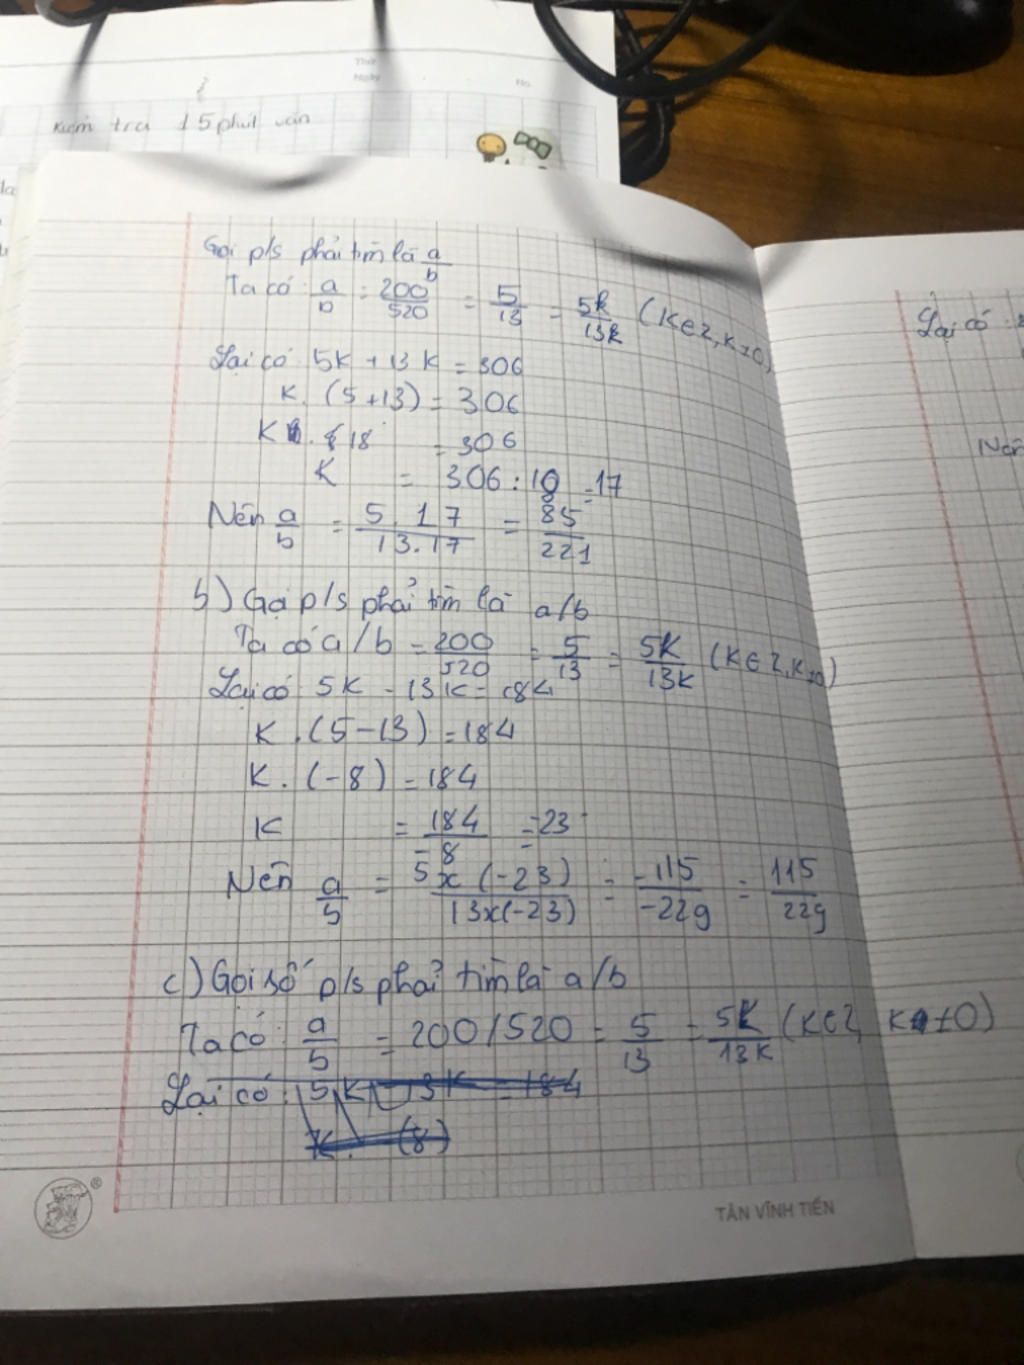 Thứ
Ngày
No.
Kiểm tra 15 phút văn
Gọi p/s phải tìm là a/b
Ta có a/b = 200/520 = 5/13 = 5k/13k (K∈Z, K≠0)
Lại có 5K + 13K = 306
K. (5+13) = 306
K. 18 = 306
K = 306 : 18 = 17
Nên a/b = 5.17/13.17 = 85/221
b) Gọi p/s phải tìm là a/b
Ta có a/b = 200/520 = 5/13 = 5K/13K (K∈Z, K≠0)
Lại có 5K - 13K = 184
K.(5-13) = 184
K. (-8) = 184
K = 184/-8 = -23
Nên a/b = 5x(-23)/13x(-23) = -115/-229 = 115/229
c) Gọi số p/s phải tìm là a/b
Ta có: a/b = 200/520 = 5/13 = 5K/13K (K∈Z, K≠0)
Lại có: 5K - 13K = 184
K. (8)
TÂN VĨNH TIẾN
Lại có :